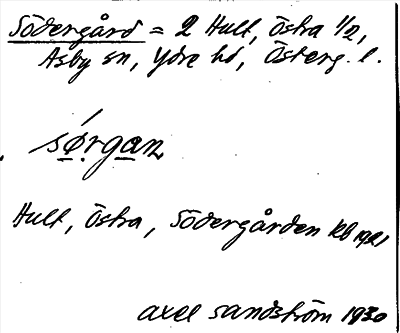 Södergård = 2 Hult, Östra 1/2,
Asby sn, Ydre hd, Österg. l.
sørgan
Hult, Östra, Södergården kb 1921
Axel Sandström 1930